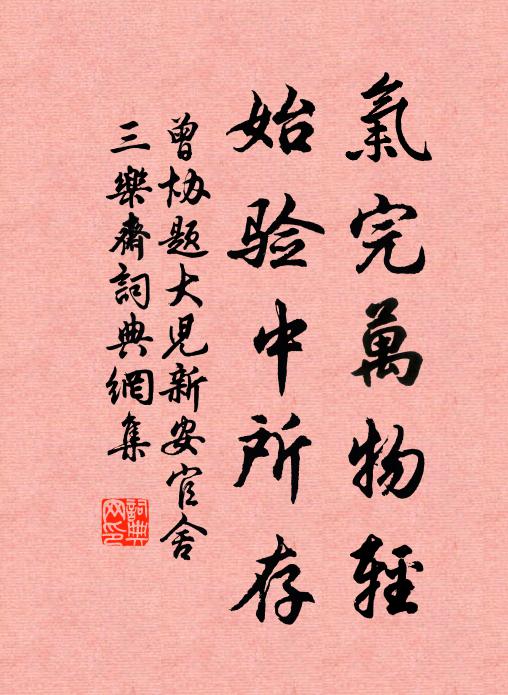 氣完萬物輕
始验中所存
曾协題大児新安官舍
三樂齋詞典網集
詞典网印